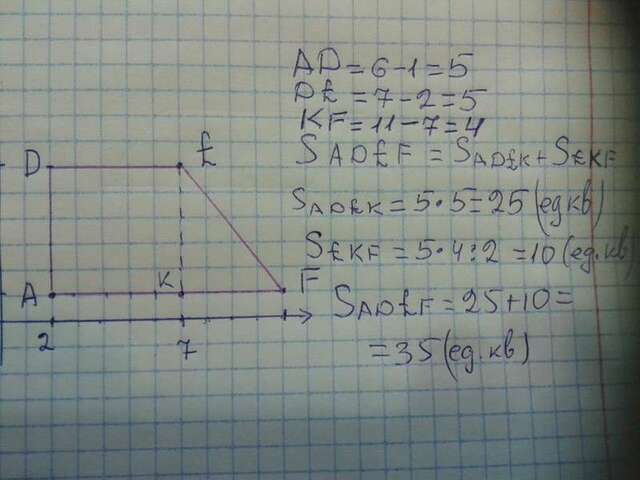 AD = 6-1 = 5
DE = 7-2 = 5
KF = 11-7 = 4
S ADEF = S ADEK + S EKF
S ADEK = 5·5 = 25 (ед кв)
S EKF = 5·4:2 = 10 (ед. кв)
S ADEF = 25+10 =
= 35 (ед. кв)
D E
A K F
2 7